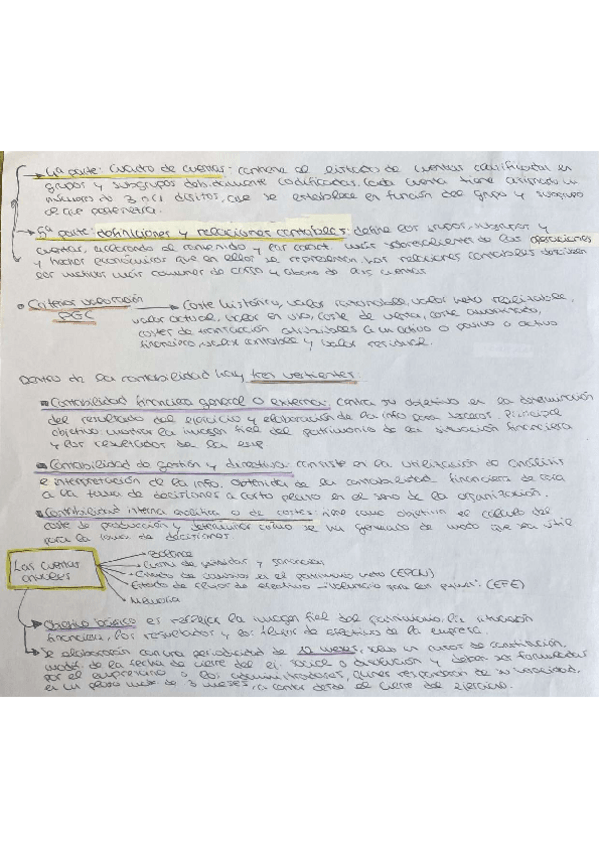 4ª parte: Cuadro de cuentas: contiene el listado de cuentas clasificadas en
grupos y subgrupos debidamente codificadas. Cada cuenta tiene asignado un
número de 3 dígitos, que se establece en función del grupo y subgrupo
al que pertenezca.
5ª parte: definiciones y relaciones contables: define los grupos, subgrupos y
cuentas, aclarando el contenido y las caract. más sobresalientes de las operaciones
y hechos económicos que en ellos se representan. Las relaciones contables describen
los motivos más comunes de cargo y abono de las cuentas
Criterios valoración
PGC
Coste histórico, valor razonable, valor neto realizable,
valor actual, valor en uso, coste de venta, coste amortizado,
costes de transacción atribuibles a un activo o pasivo
financiero valor contable y valor residual.
Dentro de la contabilidad hay tres vertientes:
Contabilidad financiera general o externa: centra su objetivo en la determinación
del resultado del ejercicio y elaboración de la info para terceros. Principal
objetivo: mostrar la imagen fiel del patrimonio de la situación financiera
y los resultados de la
Contabilidad de gestión y directiva: consiste en la utilización de análisis
e interpretación de la info. obtenida de la contabilidad financiera de cara
a la toma de decisiones a corto plazo en el seno de la organización.
Contabilidad interna analítica o de costes: tiene como objetivo el cálculo del
coste de producción y determinar como se ha generado de modo que sea útil
para la toma de decisiones.
Las cuentas
anuales
Balance
Cuenta de pérdidas y ganancias
Estado de cambios en el patrimonio neto (EPCN)
Estado de flujos de efectivo → voluntario para las (EFE)
Memoria
Objetivo básico es reflejar la imagen fiel del patrimonio, la situación
financiera, los resultados y los flujos de efectivo de la empresa.
Se elaborarán con una periodicidad de 12 meses, salvo en casos de constitución,
modif. de la fecha de cierre del ej. social o disolución y deben ser formuladas
por el empresario o los administradores, quienes responderán de su veracidad,
en un plazo máx. de 3 meses, a contar desde el cierre del ejercicio.